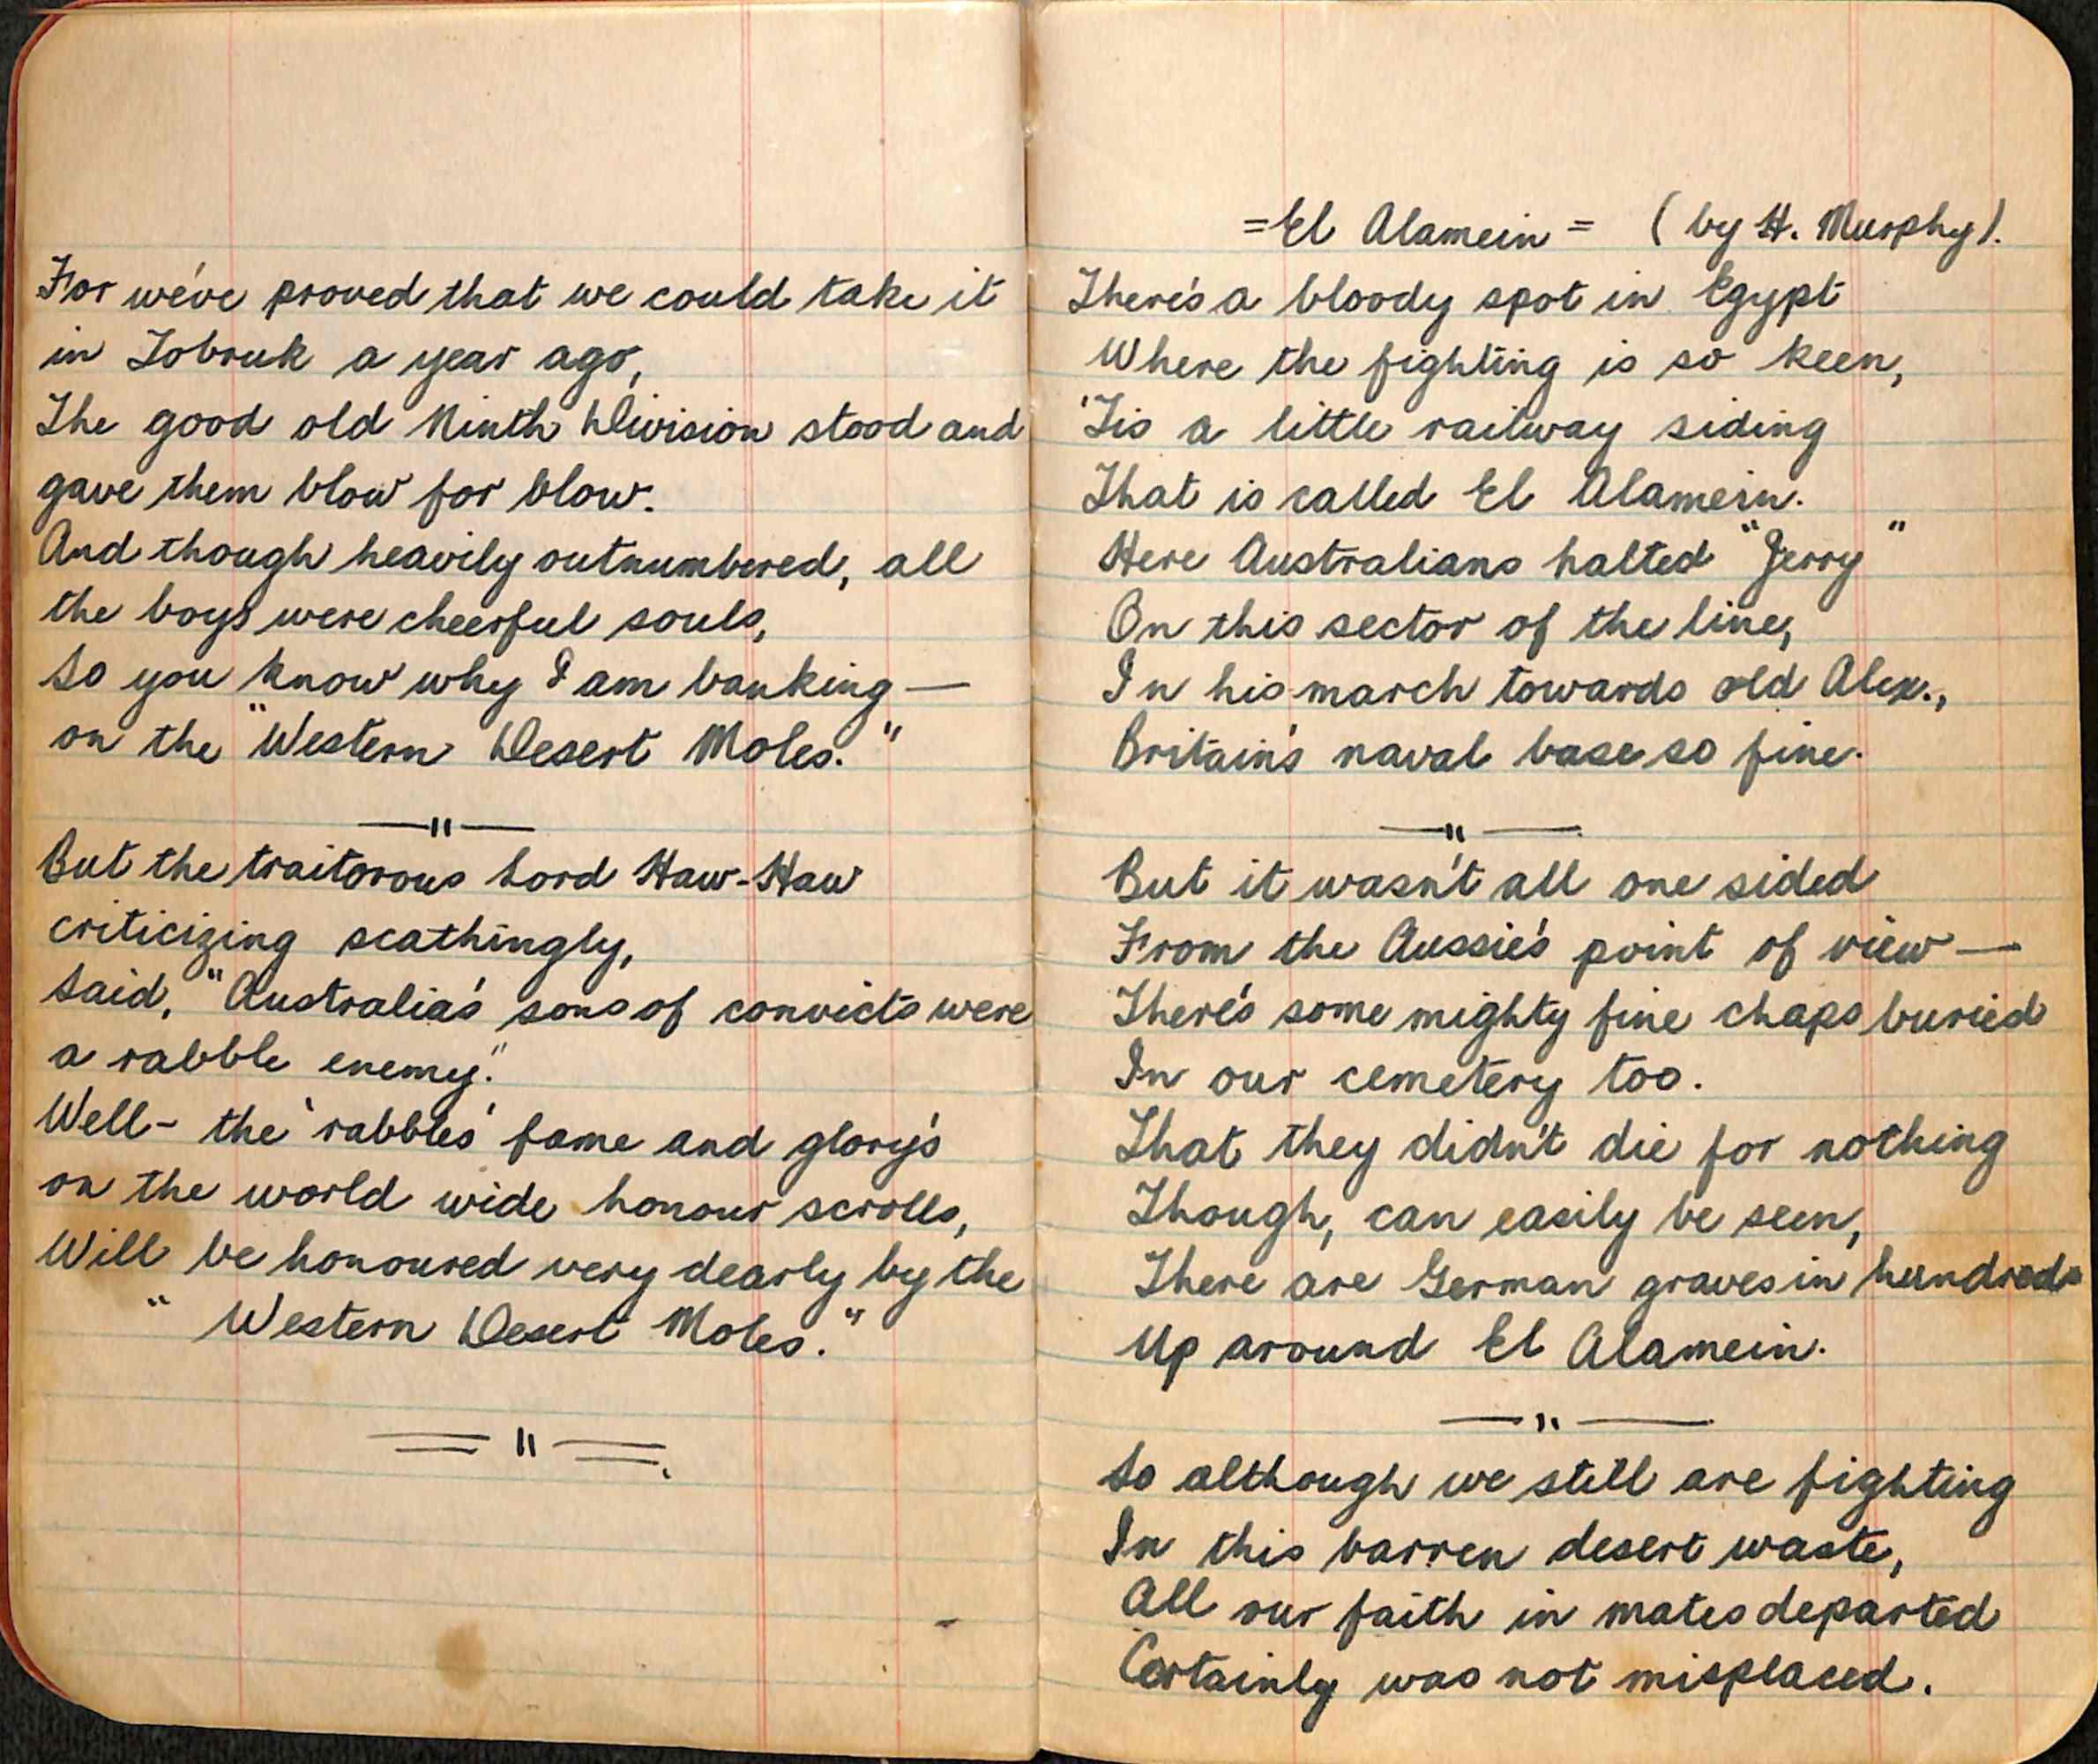 For we've proved that we could take it
in Tobruk a year ago,
The good old Ninth Division stood and
gave them blow for blow.
And though heavily outnumbered, all
the boys were cheerful souls,
So you know why I am banking —
on the "Western Desert Moles."
— " —
But the traitorous Lord Haw-Haw
criticizing scathingly,
Said, "Australia's sons of convicts were
a rabble enemy."
Well - the 'rabbles' fame and glory's
on the world wide honour scrolls,
Will be honoured very dearly by the
"Western Desert Moles."
= " =.
= El Alamein = (by H. Murphy).
There's a bloody spot in Egypt
Where the fighting is so keen,
'Tis a little railway siding
That is called El Alamein.
Here Australians halted "Jerry"
On this sector of the line,
In his march towards old Alex.,
Britain's naval base so fine.
— " —
But it wasn't all one sided
From the Aussie's point of view —
There's some mighty fine chaps buried
In our cemetery too.
That they didn't die for nothing
Though, can easily be seen,
There are German graves in hundreds
Up around El Alamein.
— " —
So although we still are fighting
In this barren desert waste,
All our faith in mates departed
Certainly was not misplaced.